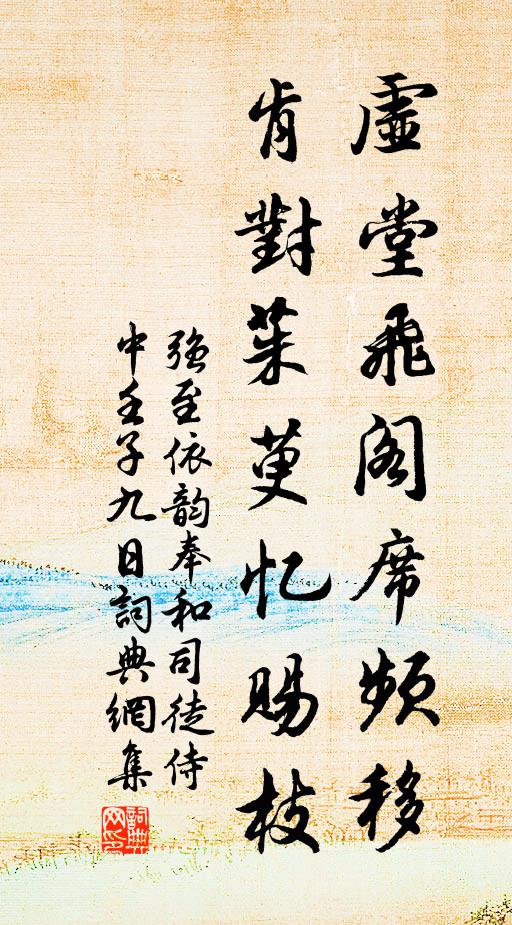 虛堂飛閣席頻移
肯對茱萸忆賜枝
強至依韵奉和司徒侍
中壬子九日詞典網集
詞典网印